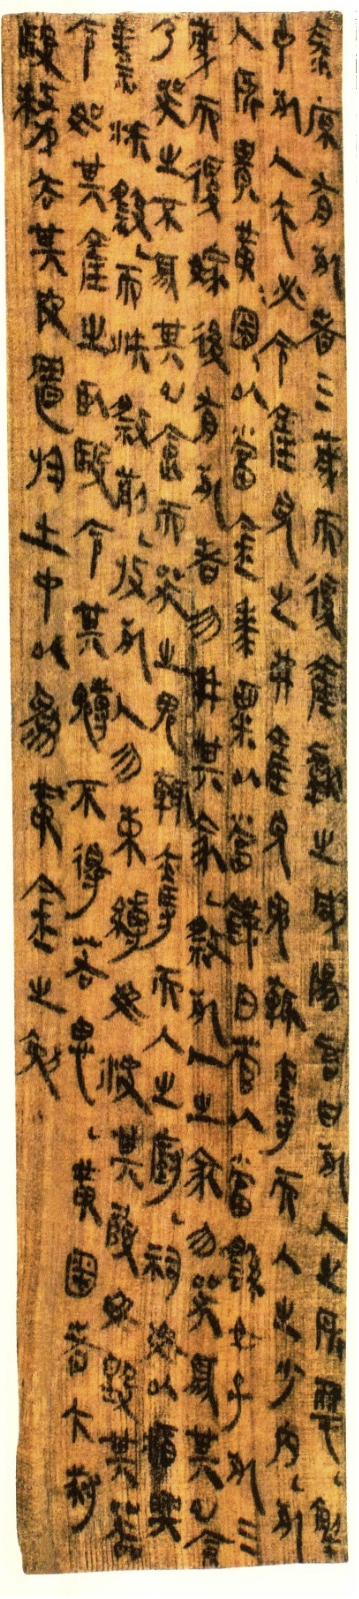 泰原有死者三歲而復產獻之咸陽言曰死人之所惡└解
予死人衣必令產見之弗產見鬼輒奪而入之少內└死
人所貴黃圈└以當金黍粟以當錢白菅以當繇女子死三
歲而復嫁後有死者勿并其冢└祭死人之冢勿哭須其已食
乃哭之不須其已食而哭之鬼輒奪而入之廚└祠毋以酒與
羹沃祭└而沃祭前└收死人勿束縛毋決其履毋毀其器
令如其產之臥殹令其魄不得茖思└黃圈者大叔
殹剝去其皮置於土中以為黃金之勉